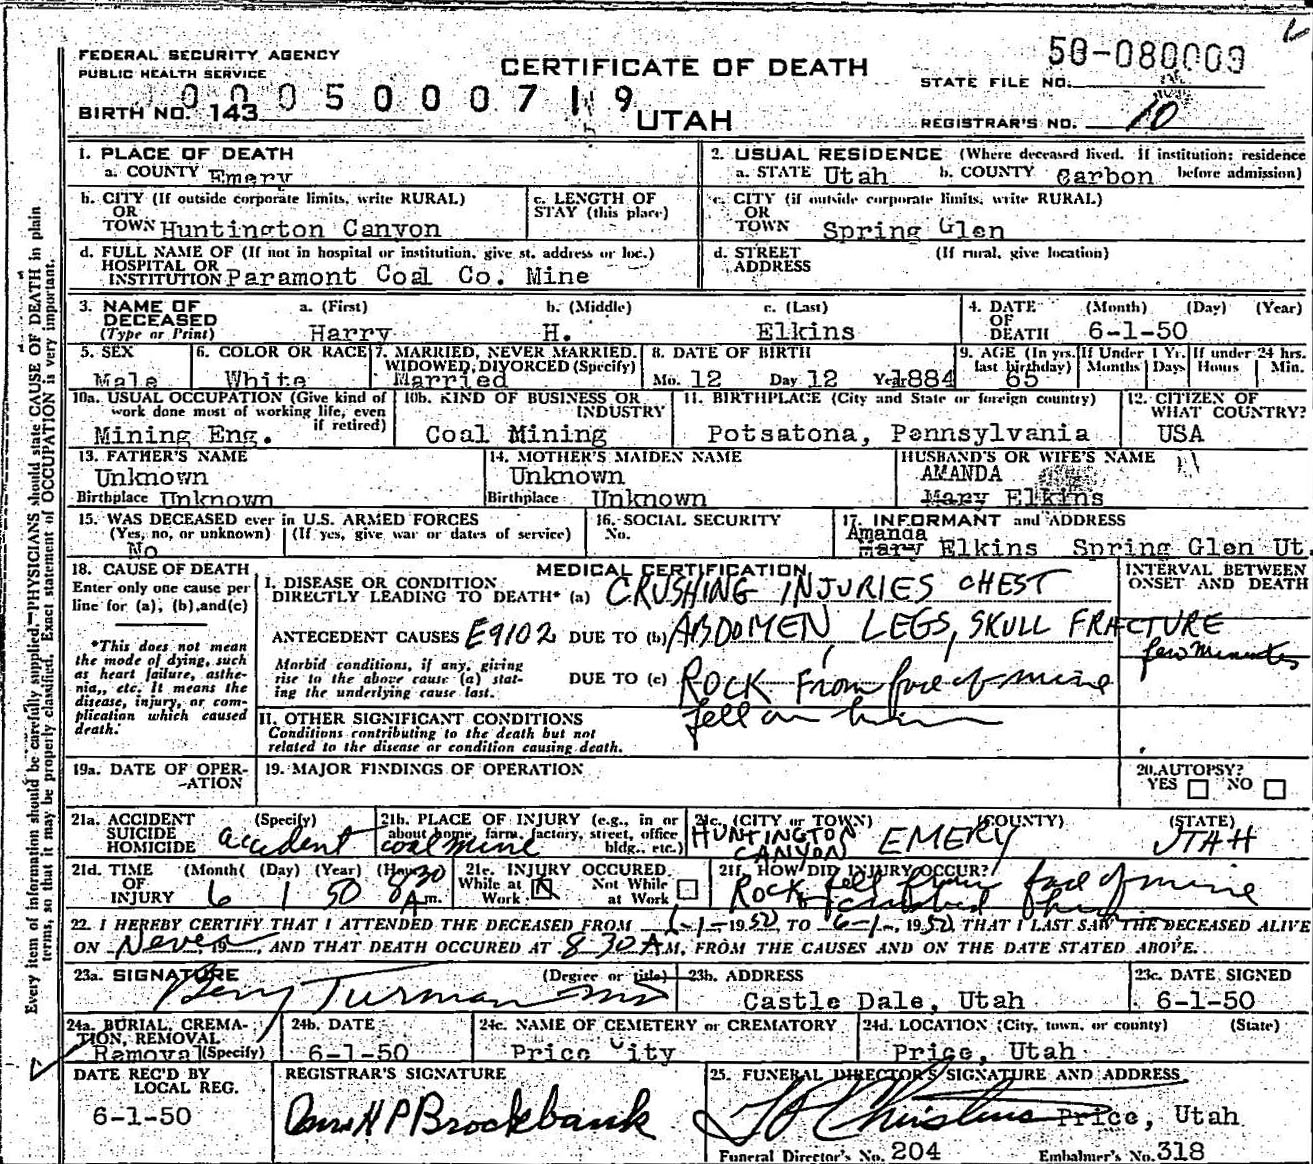 FEDERAL SECURITY AGENCY
PUBLIC HEALTH SERVICE
CERTIFICATE OF DEATH
50-080009
STATE FILE NO.
00050007 19
BIRTH NO. 143
UTAH
REGISTRAR'S NO. 10
1. PLACE OF DEATH
a. COUNTY Emery
2. USUAL RESIDENCE (Where deceased lived. If institution: residence before admission)
a. STATE Utah b. COUNTY Carbon
b. CITY (If outside corporate limits, write RURAL) OR TOWN Huntington Canyon
c. LENGTH OF STAY (this place)
c. CITY (if outside corporate limits, write RURAL) OR TOWN Spring Glen
d. FULL NAME OF (If not in hospital or institution, give st. address or loc.) HOSPITAL OR INSTITUTION Paramont Coal Co. Mine
d. STREET ADDRESS (If rural, give location)
3. NAME OF DECEASED (Type or Print)
a. (First) Harry
b. (Middle) H.
c. (Last) Elkins
4. DATE OF DEATH (Month) (Day) (Year) 6-1-50
5. SEX Male
6. COLOR OR RACE White
7. MARRIED, NEVER MARRIED, WIDOWED, DIVORCED (Specify) Married
8. DATE OF BIRTH Mo. 12 Day 12 Year 1884
9. AGE (In yrs. last birthday) 65
If Under 1 Yr. Months Days
If under 24 hrs. Hours Min.
10a. USUAL OCCUPATION (Give kind of work done most of working life, even if retired) Mining Eng.
10b. KIND OF BUSINESS OR INDUSTRY Coal Mining
11. BIRTHPLACE (City and State or foreign country) Potsatona, Pennsylvania
12. CITIZEN OF WHAT COUNTRY? USA
13. FATHER'S NAME Unknown
Birthplace Unknown
14. MOTHER'S MAIDEN NAME Unknown
Birthplace Unknown
HUSBAND'S OR WIFE'S NAME
AMANDA
Mary Elkins
15. WAS DECEASED ever in U.S. ARMED FORCES (Yes, no, or unknown) (If yes, give war or dates of service) No
16. SOCIAL SECURITY No.
17. INFORMANT and ADDRESS
Amanda
Mary Elkins Spring Glen Ut.
18. CAUSE OF DEATH
Enter only one cause per line for (a), (b), and (c)
*This does not mean the mode of dying, such as heart failure, asthenia, etc. It means the disease, injury, or complication which caused death.
MEDICAL CERTIFICATION
I. DISEASE OR CONDITION DIRECTLY LEADING TO DEATH* (a) CRUSHING INJURIES CHEST
ANTECEDENT CAUSES E9102 DUE TO (b) ABDOMEN, LEGS, SKULL FRACTURE
Morbid conditions, if any, giving rise to the above cause (a) stating the underlying cause last.
DUE TO (c) ROCK From face of mine
fell on him
INTERVAL BETWEEN ONSET AND DEATH
few minutes
II. OTHER SIGNIFICANT CONDITIONS
Conditions contributing to the death but not related to the disease or condition causing death.
19a. DATE OF OPERATION
19. MAJOR FINDINGS OF OPERATION
20. AUTOPSY? YES NO
21a. ACCIDENT SUICIDE HOMICIDE (Specify) accident
21b. PLACE OF INJURY (e.g., in or about home, farm, factory, street, office bldg., etc.) coal mine
21c. (CITY OR TOWN) (COUNTY) (STATE)
HUNTINGTON CANYON EMERY UTAH
21d. TIME OF INJURY (Month) (Day) (Year) (Hour) 6 1 50 8 30 A m.
21e. INJURY OCCURED While at Work Not While at Work
21f. HOW DID INJURY OCCUR?
Rock fell from face of mine
& crushed him
22. I HEREBY CERTIFY THAT I ATTENDED THE DECEASED FROM 6-1-, 1950, TO 6-1-, 1950, THAT I LAST SAW THE DECEASED ALIVE
ON Never 19, AND THAT DEATH OCCURED AT 8 30 A M, FROM THE CAUSES AND ON THE DATE STATED ABOVE.
23a. SIGNATURE (Degree or title)
Turman MD
23b. ADDRESS Castle Dale, Utah
23c. DATE SIGNED 6-1-50
24a. BURIAL, CREMATION, REMOVAL (Specify) Removal
24b. DATE 6-1-50
24c. NAME OF CEMETERY or CREMATORY Price City
24d. LOCATION (City, town, or county) (State) Price, Utah
DATE REC'D BY LOCAL REG. 6-1-50
REGISTRAR'S SIGNATURE
H P Brockbank
25. FUNERAL DIRECTOR'S SIGNATURE AND ADDRESS
Price, Utah
Funeral Director's No. 204 Embalmer's No. 318
Every item of information should be carefully supplied.—PHYSICIANS should state CAUSE OF DEATH in plain
terms, so that it may be properly classified. Exact statement of OCCUPATION is very important.